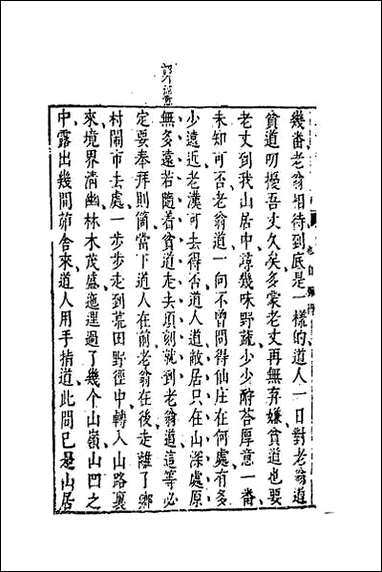 幾番老翁相待到底是一樣的道人一日對老翁道
貧道叨擾吾丈久矣多蒙老丈再無弃嫌貧道也要
老丈到我山居中尋幾味野蔬少少酧荅厚意一番
未知可否老翁道一向不曾問得仙庄在何處有多
少遠近老漢可去得否道人道敝居只在山深處原
無多遠若隨着貧道走去頃刻就到老翁道這等必
定要奉拜則箇當下道人在前老翁在後走離了鄉
村閙市去處一步步走到荒田野徑中轉入山路裏
來境界清幽林木茂盛迤邐過了幾个山嶺山凹之
中露出幾間茆舍來道人用手指道此間已是山居